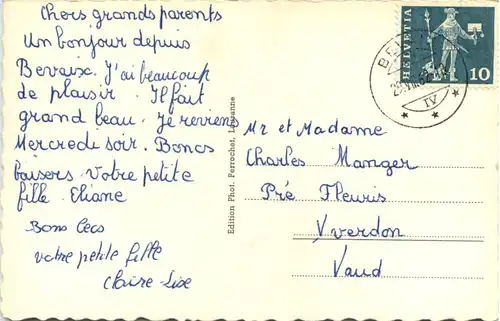 Chers grands parents
Un bonjour depuis
Bevaix. J'ai beaucoup
de plaisir. Il fait
grand beau. Je reviens
Mercredi soir. Boncs
baisers. Votre petite
fille. Eliane
Bons becs
votre petite fille
Claire-Lise
Edition Phot. Perrochet, Lausanne
HELVETIA
10
IV
Mr et Madame
Charles Manger
Pré Fleuris
Yverdon
Vaud